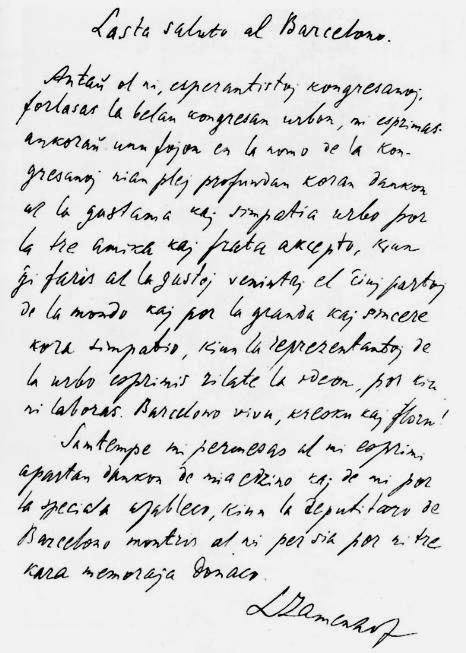 Lasta saluto al Barcelono.
Antaŭ ol ni, esperantistoj kongresanoj,
forlasas la belan kongresan urbon, mi esprimas
ankoraŭ unu fojon en la nomo de la kon-
gresanoj nian plej profundan koran dankon
al la gastama kaj simpatia urbo por
la tre amika kaj frata akcepto, kiun
ĝi faris al la gastoj venintaj el ĉiuj partoj
de la mondo kaj por la granda kaj sincere
kora simpatio, kiun la reprezentantoj de
la urbo esprimis rilate la ideon, por kiu
ni laboras. Barcelono vivu, kresku kaj floru!
Samtempe mi permesas al mi esprimi
apartan dankon de mia edzino kaj de mi por
la speciala afableco, kiun la deputitaro de
Barcelono montris al ni per sia por ni tre
kara memoraĵa donaco.
LZamenhof